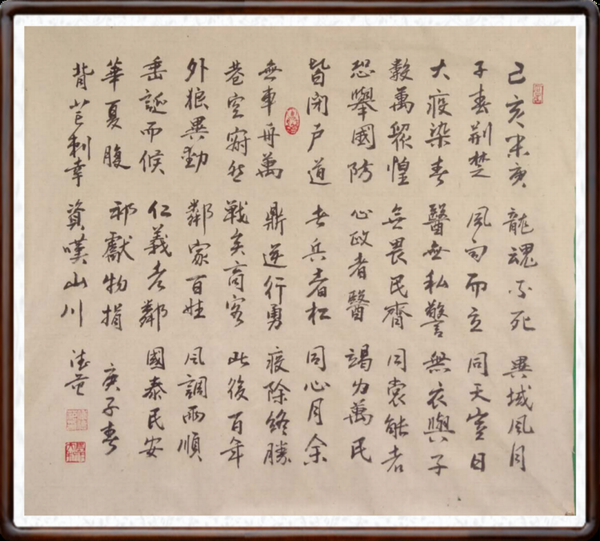 己亥末庚
子春荊楚
大疫染者
數萬眾惶
恐舉國防
皆閉戶道
無車舟萬
巷空寂然
外狼異動
垂涎而候
華夏腹
背芒刺幸
龍魂不死
風雨而立
醫無私警
無畏民齊
心政者醫
者兵者扛
鼎逆行勇
戰矣商客
鄰家百姓
仁義者鄰
邦獻物捐
資嘆山川
異域風月
同天豈曰
無衣與子
同裳能者
竭力萬民
同心月余
疫除終勝
此後百年
風調雨順
國泰民安
庚子春